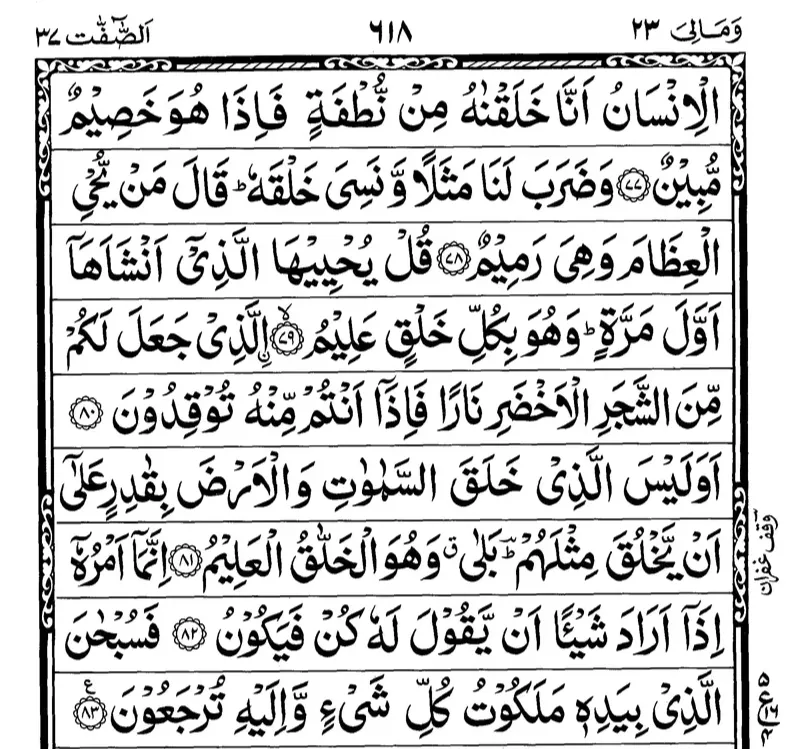 وَمَالِیَ ٢٣ ٦١٨ اَلصّٰٓفّٰت ٣٧
الْاِنْسَانُ اَنَّا خَلَقْنٰهُ مِنْ نُّطْفَةٍ فَاِذَا هُوَ خَصِیْمٌ
مُّبِیْنٌ ﴿٧٧﴾ وَضَرَبَ لَنَا مَثَلًا وَّنَسِیَ خَلْقَهٗ ؕ قَالَ مَنْ یُّحْیِ
الْعِظَامَ وَهِیَ رَمِیْمٌ ﴿٧٨﴾ قُلْ یُحْیِیْهَا الَّذِیْۤ اَنْشَاَهَاۤ
اَوَّلَ مَرَّةٍ ؕ وَهُوَ بِكُلِّ خَلْقٍ عَلِیْمُ ۙ﴿٧٩﴾ اِ۟لَّذِیْ جَعَلَ لَكُمْ
مِّنَ الشَّجَرِ الْاَخْضَرِ نَارًا فَاِذَاۤ اَنْتُمْ مِّنْهُ تُوْقِدُوْنَ ﴿٨٠﴾
اَوَلَیْسَ الَّذِیْ خَلَقَ السَّمٰوٰتِ وَالْاَرْضَ بِقٰدِرٍ عَلٰۤی
اَنْ یَّخْلُقَ مِثْلَهُمْ ؕ بَلٰی ۗ وَهُوَ الْخَلّٰقُ الْعَلِیْمُ ﴿٨١﴾ اِنَّمَاۤ اَمْرُهٗۤ
اِذَاۤ اَرَادَ شَیْـًٔا اَنْ یَّقُوْلَ لَهٗ كُنْ فَیَكُوْنُ ﴿٨٢﴾ فَسُبْحٰنَ
الَّذِیْ بِیَدِهٖ مَلَكُوْتُ كُلِّ شَیْءٍ وَّاِلَیْهِ تُرْجَعُوْنَ ﴿٨٣﴾ ع
وقف غفران